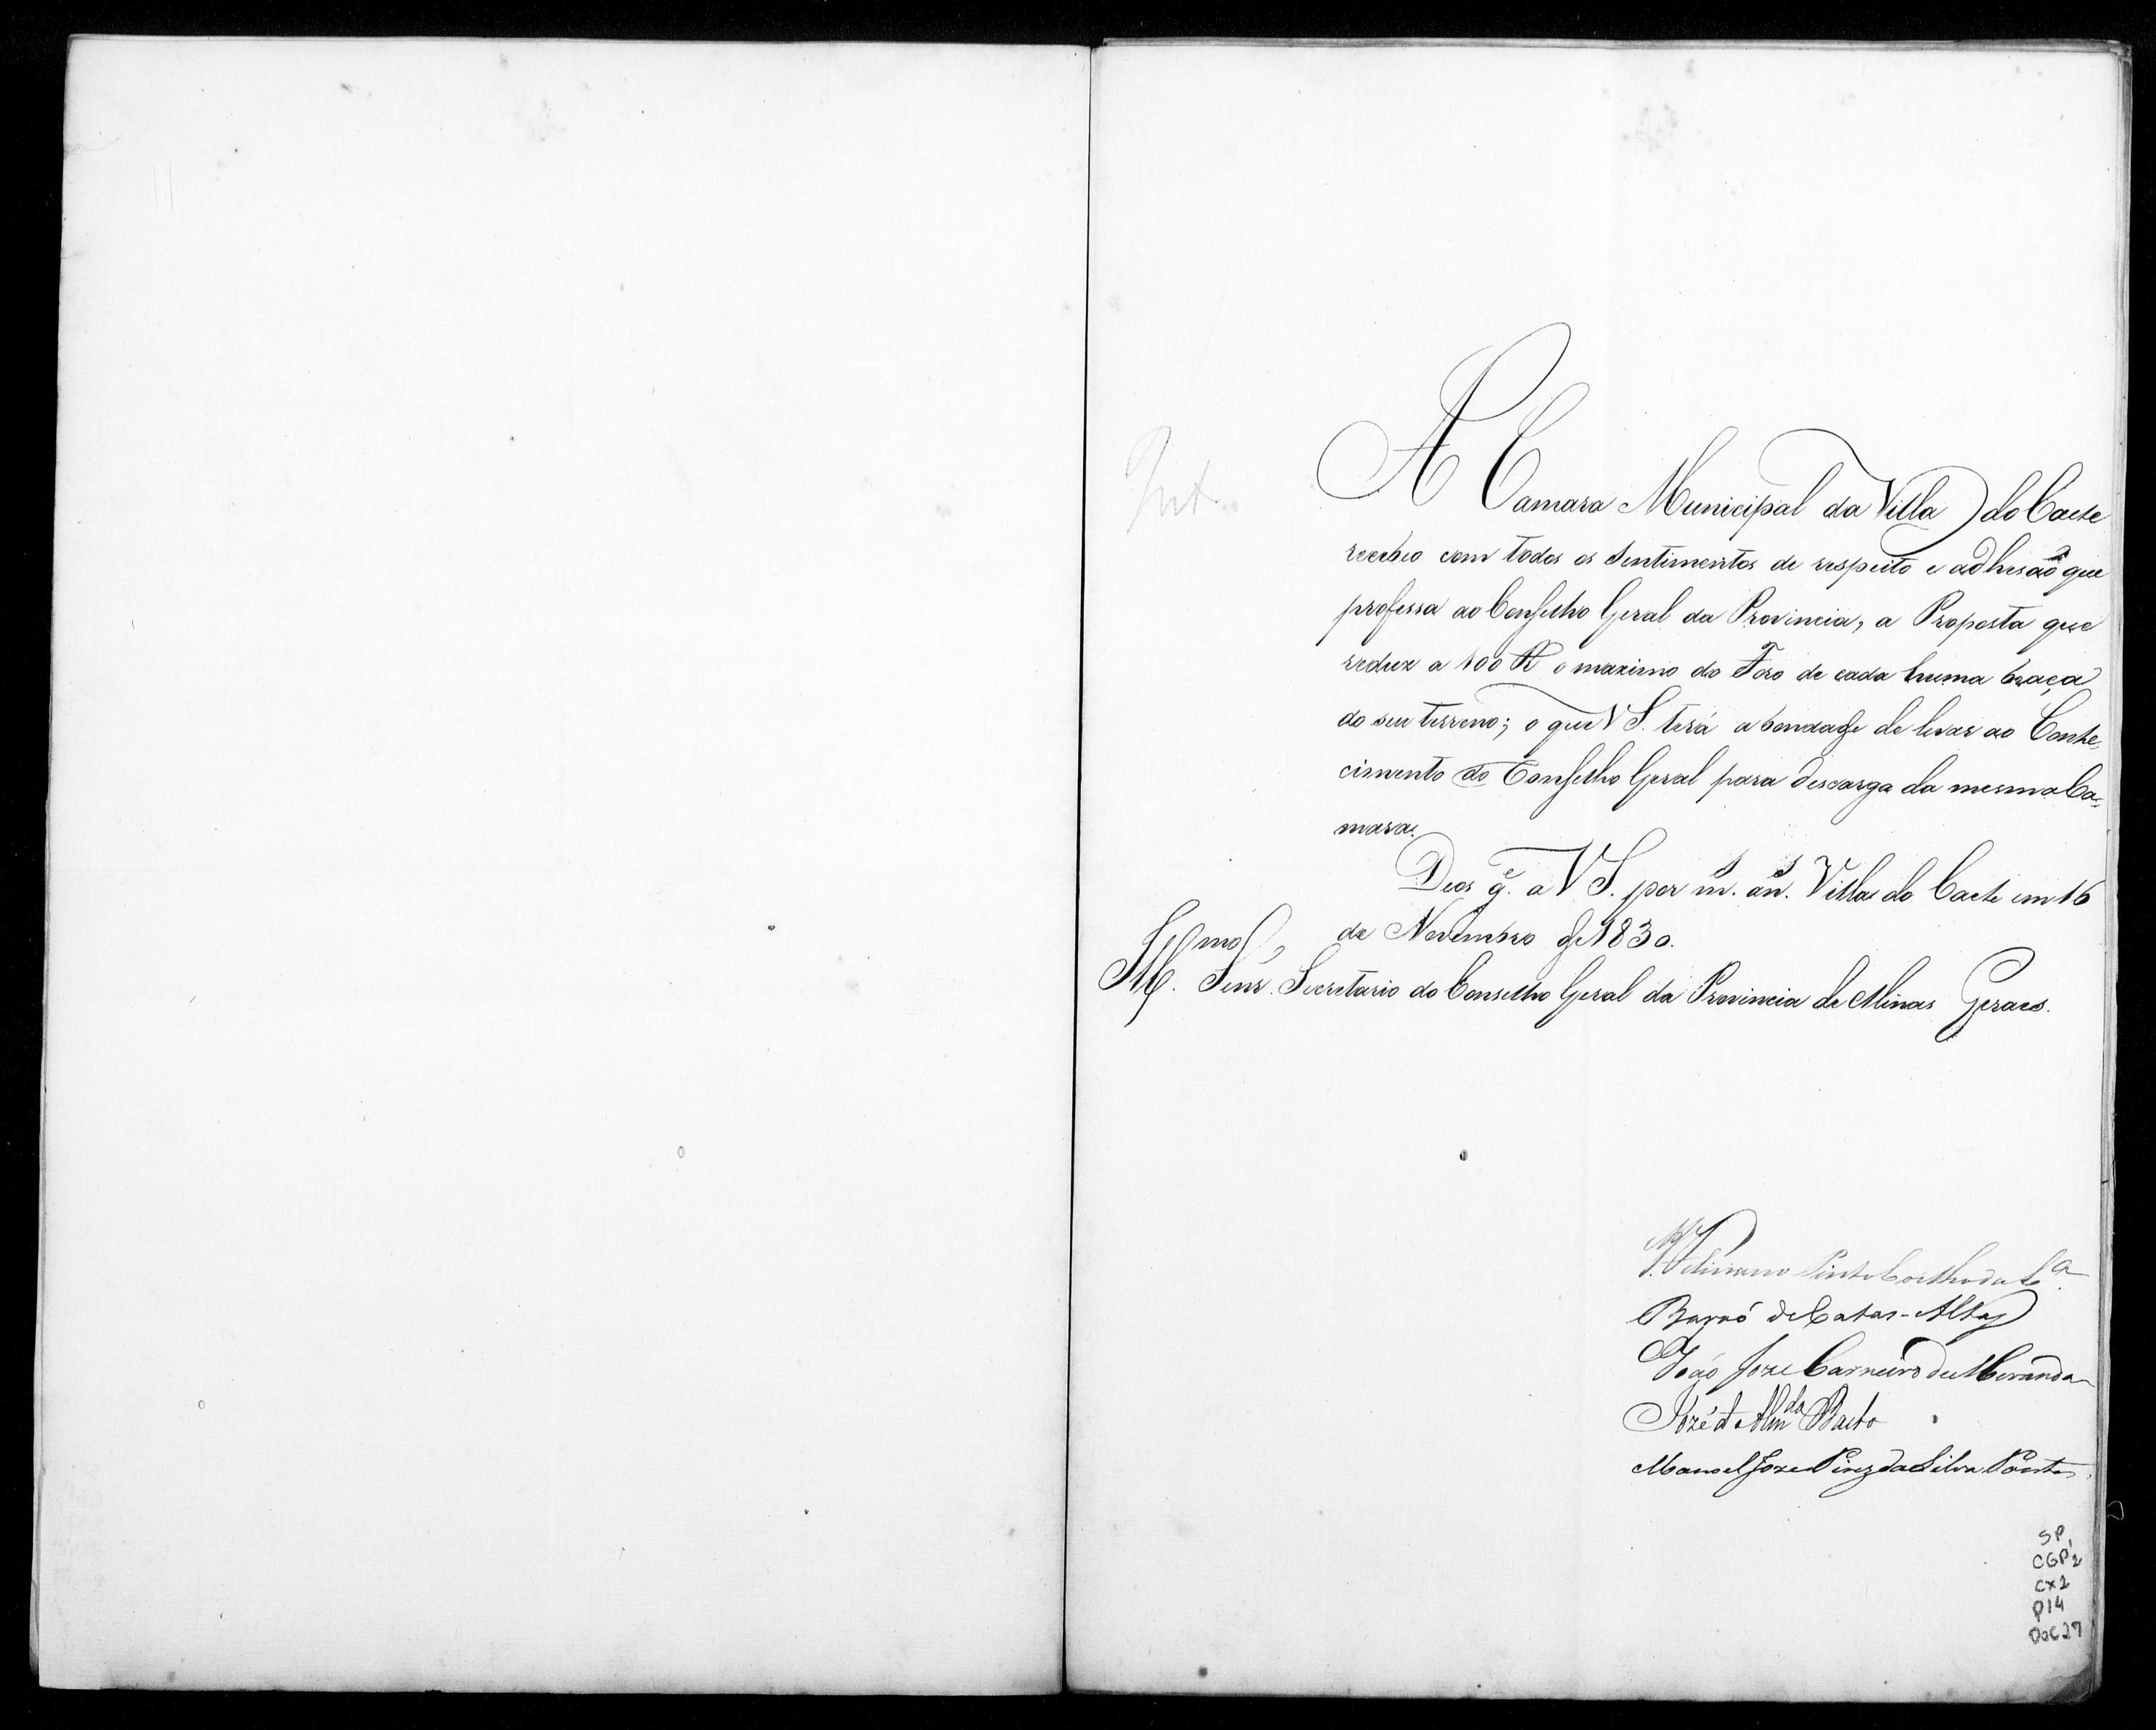 Int.
A Camara Municipal da Villa do Caete
recebeo com todos os Sentimentos de respeito e adhesaõ que
professa ao Conselho Geral da Provincia, a Proposta que
reduz a 100 R o maximo do Foro de cada huma braça
do seu terreno; o que V S. terá a bondade de levar ao Conhe,
cimento do Conselho Geral para descarga da mesma Ca,
mara.
Deos g.e a V S. por m.s an.s Villa do Caete em 16
de Novembro de 1830.
Ill.mo Senr. Secretario do Conselho Geral da Provincia de Minas Geraes.
Feliciano Pinto Coelho da C.a
Baraõ de Catas-Altas
João Joze Carneiro de Miranda
Jozé d Alm.da Basto
Manoel Joze Pires da Silva Pontes
SP,
CGP,2
CX2
P14
DOC27